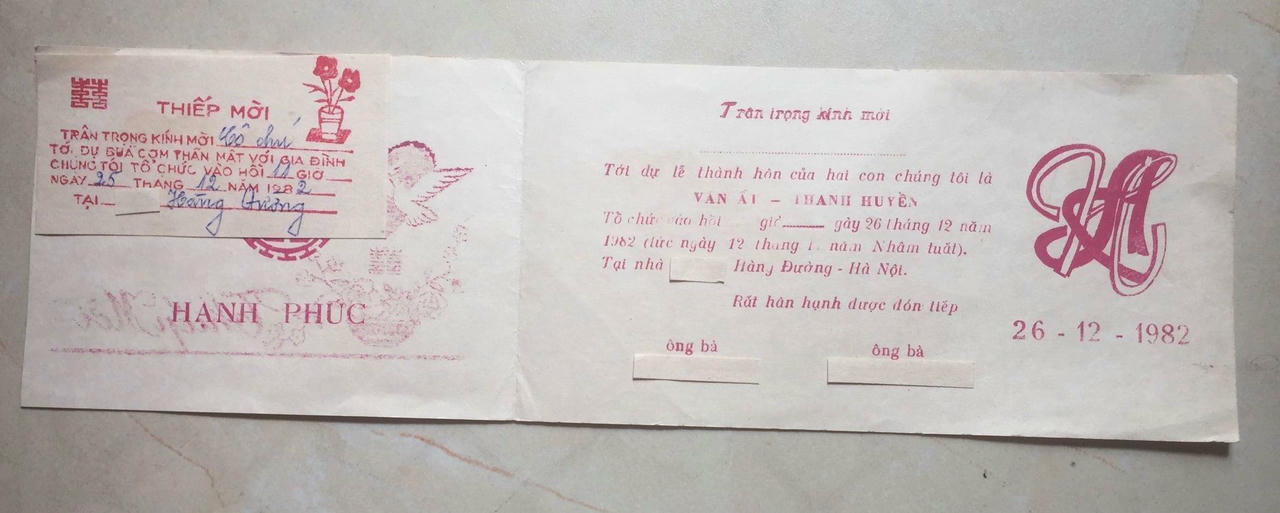 囍
THIẾP MỜI
TRÂN TRỌNG KÍNH MỜI Cô chú
TỚI DỰ BỮA CƠM THÂN MẬT VỚI GIA ĐÌNH
CHÚNG TÔI TỔ CHỨC VÀO HỒI 11 GIỜ
NGÀY 25 THÁNG 12 NĂM 1982
TẠI Hàng Đường
HẠNH PHÚC
Thiếp Mời
Trân trọng kính mời
Tới dự lễ thành hôn của hai con chúng tôi là
VĂN ẤT - THANH HUYỀN
Tổ chức vào hồi giờ gày 26 tháng 12 năm
1982 (tức ngày 12 tháng năm Nhâm tuất).
Tại nhà Hàng Đường - Hà Nội.
Rất hân hạnh được đón tiếp
ông bà
ông bà
26 - 12 - 1982